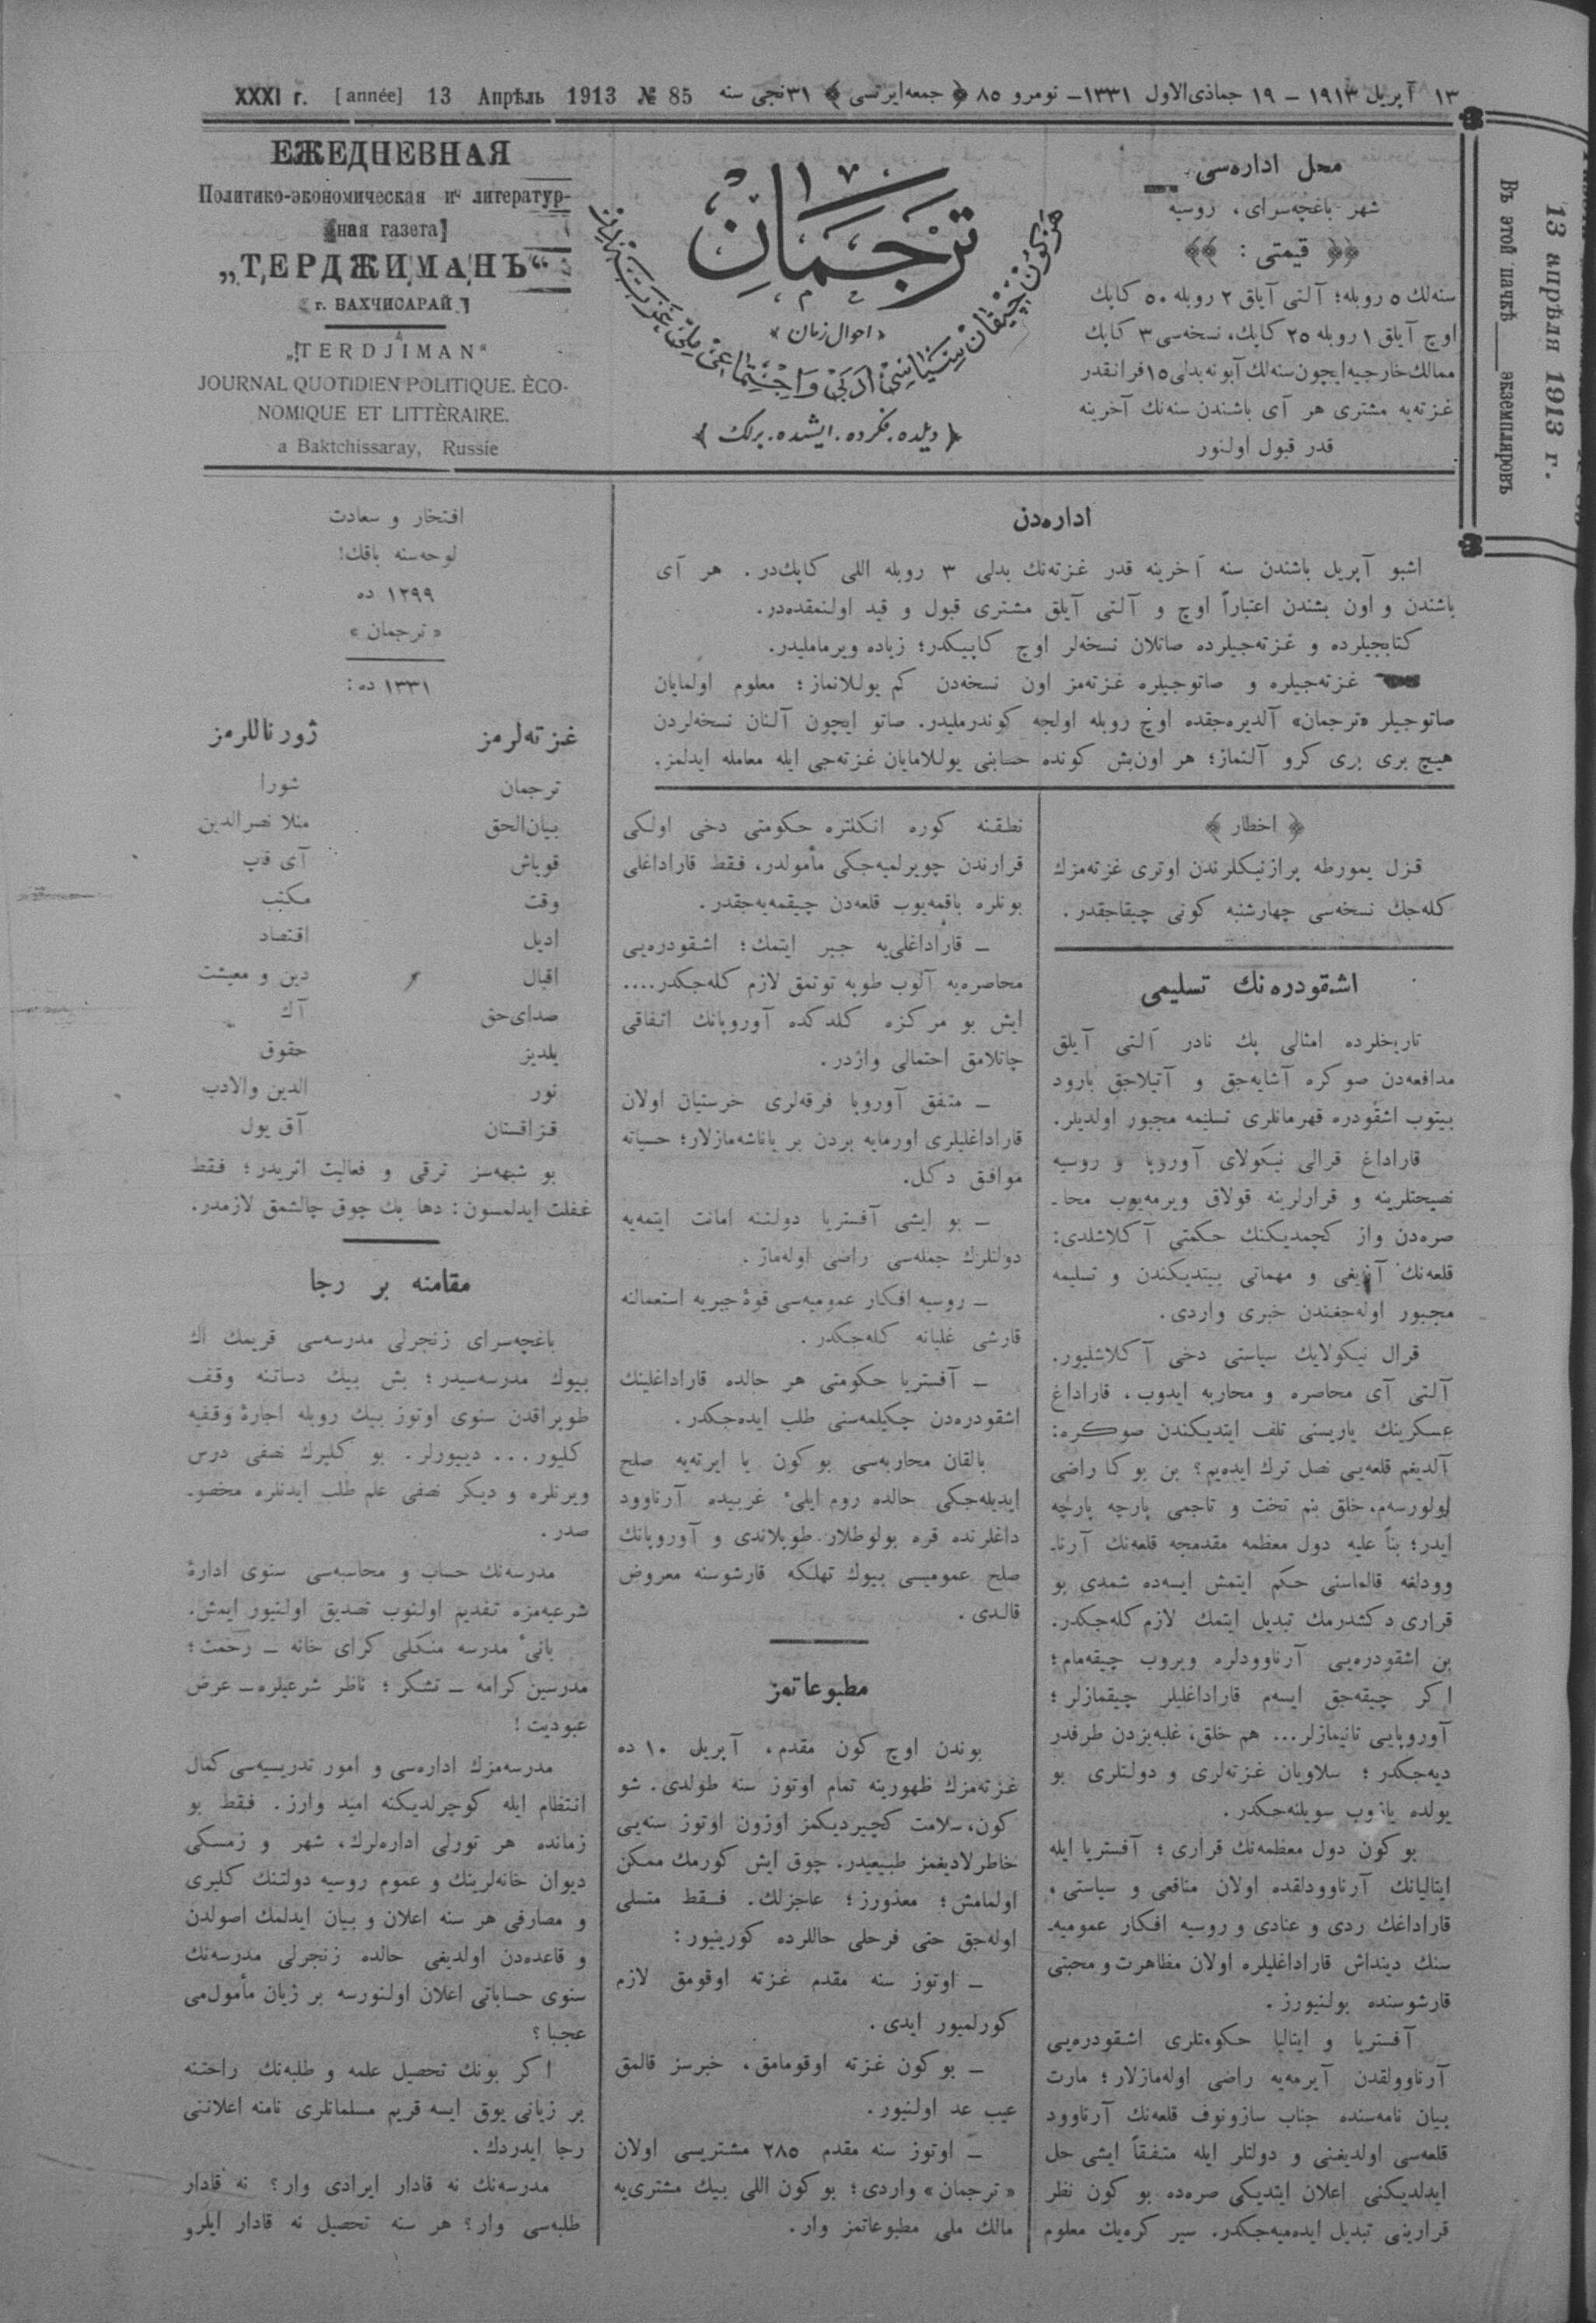 ١٣ آپریل ١٩١٣ – ١٩ جماذی‌الاول ١٣٣١– نومرو ٨٥ ﴿ جمعه‌ایرتسی ﴾ ٣١نجی سنه
XXXI г. [année] 13 Апрѣль 1913 № 85
محل اداره‌سی
شهر باغچه‌سرای، روسیه
﴿﴿ قیمتی : ﴾﴾
سنه‌لك ٥ روبله؛ آلتی آیلق ٢ روبله ٥٠ کاپك
اوچ آیلق ١ روبله ٢٥ کاپك، نسخه‌سی ٣ کاپك
ممالك خارجیه‌ایچون سنه‌لك آبونه بدلی ١٥ فرانقدر
غزته‌یه مشتری هر آی باشندن سنه‌نك آخرینه
قدر قبول اولنور
ترجمان
﴿احوال زمان﴾
هر کون چیقان سیاسی ادبی و اجتماعی ملی غزته‌در
﴿ دیلده. فکرده. ایشده. برلك ﴾
ЕЖЕДНЕВНАЯ
Политико-экономическая и литератур-
ная газета
„ТЕРДЖИМАНЪ“
г. БАХЧИСАРАЙ
„TERDJIMAN“
JOURNAL QUOTIDIEN POLITIQUE. ÈCO-
NOMIQUE ET LITTÈRAIRE.
a Baktchissaray, Russie
13 апрѣля 1913 г.
Въ этой пачкѣ ____ экземпляровъ
اداره‌دن
اشبو آپریل باشندن سنه آخرینه قدر غزته‌نك بدلی ٣ روبله اللی کاپك‌در. هر آی
باشندن و اون بشندن اعتباراً اوچ و آلتی آیلق مشتری قبول و قید اولنمقده‌در.
کتابجیلرده و غزته‌جیلرده صاتلان نسخه‌لر اوچ کاپیکدر؛ زیاده ویرماملیدر.
غزته‌جیلره و صاتوجیلره غزته‌مز اون نسخه‌دن کم یوللانماز؛ معلوم اولمایان
صاتوجیلر «ترجمان» آلدیره‌جقده اوچ روبله اولجه کوندرملیدر. صاتو ایچون آلنان نسخه‌لردن
هیچ بری بری کرو آلنماز؛ هر اون‌بش کونده حسابنی یوللامایان غزته‌جی ایله معامله ایدلمز.
﴿ اخطار ﴾
قزل یمورطه پرازنیکلرندن اوتری غزته‌مزك
کله‌جك نسخه‌سی چهارشنبه کونی چیقاجقدر.
اشقودره‌نك تسلیمی
تاریخلرده امثالی پك نادر آلتی آیلق
مدافعه‌دن صوکره آشایه‌جق و آتیلاجق بارود
بیتوب اشقودره قهرمانلری تسلیمه مجبور اولدیلر.
قاراداغ قرالی نیکولای آوروپا و روسیه
نصیحتلرینه و قرارلرینه قولاق ویرمه‌یوب محا-
صره‌دن واز کچمدیکنك حکمتی آکلاشلدی:
قلعه‌نك آزیغی و مهماتی بیتدیکندن و تسلیمه
مجبور اوله‌جغندن خبری واردی.
قرال نیکولایك سیاستی دخی آکلاشلیور.
آلتی آی محاصره و محاربه ایدوب، قاراداغ
عسکرینك یاریسنی تلف ایتدیکندن صوکره:
آلدیغم قلعه‌یی نصل ترك ایده‌یم؟ بن بوکا راضی
اولورسه‌م، خلق بنم تخت و تاجمی پارچه پارچه
ایدر؛ بناً علیه دول معظمه مقدمجه قلعه‌نك آرنا-
وودلغه قالماسنی حکم ایتمش ایسه‌ده شمدی بو
قراری دکشدرمك تبدیل ایتمك لازم کله‌جکدر.
بن اشقودره‌یی آرناوودلره ویروب چیقه‌مام؛
اکر چیقه‌جق ایسه‌م قاراداغلیلر چیقمازلر؛
آوروپایی تانیمازلر... هم خلق، غلبه‌یزدن طرفدر
دیه‌جکدر؛ سلاویان غزته‌لری و دولتلری بو
یولده یازوب سویلنه‌جکدر.
بوکون دول معظمه‌نك قراری؛ آفستریا ایله
ایتالیانك آرناوودلقده اولان منافعی و سیاستی،
قاراداغك ردی و عنادی و روسیه افکار عمومیه-
سنك دینداش قاراداغلیلره اولان مظاهرت و محبتی
قارشوسنده بولنیورز.
آفستریا و ایتالیا حکومتلری اشقودره‌یی
آرناوولقدن آیرمه‌یه راضی اوله‌مازلار؛ مارت
بیان نامه‌سنده جناب سازونوف قلعه‌نك آرناوود
قلعه‌سی اولدیغنی و دولتلر ایله متفقاً ایشی حل
ایدلدیکنی اعلان ایتدیکی صره‌ده بوکون نظر
قرارینی تبدیل ایده‌میه‌جکدر. سیر کره‌یك معلوم
نطقنه کوره انکلتره حکومتی دخی اولکی
قرارندن چویرلمیه‌جکی مأمولدر، فقط قاراداغلی
بونلره باقمه‌یوب قلعه‌دن چیقمه‌یه‌جقدر.
– قاراداغلی‌یه جبر ایتمك؛ اشقودره‌یی
محاصره‌یه آلوب طوپه توتمق لازم کله‌جکدر....
ایش بو مرکزه کلدکده آوروپانك اتفاقی
چاتلامق احتمالی واردر.
– متفق آوروپا فرقه‌لری خرستیان اولان
قاراداغلیلری اورمایه بردن بر یاناشه‌مازلار؛ حسیاته
موافق دکل.
– بو ایشی آفستریا دولتنه امانت ایتمه‌یه
دولتلرك جمله‌سی راضی اوله‌ماز.
– روسیه افکار عمومیه‌سی قوهٔ جبریه استعمالنه
قارشی غلیانه کله‌جکدر.
– آفستریا حکومتی هر حالده قاراداغلینك
اشقودره‌دن چکیلمه‌سنی طلب ایده‌جکدر.
بالقان محاربه‌سی بوکون یا ایرته‌یه صلح
ایدیله‌جکی حالده روم ایلیٔ غربیده آرناوود
داغلرنده قره بولوطلار طوپلاندی و آوروپانك
صلح عمومیسی بیوك تهلکه قارشوسنه معروض
قالدی.
مطبوعاتمز
بوندن اوچ کون مقدم، آپریل ١٠ ده
غزته‌مزك ظهورینه تمام اوتوز سنه طولدی. شو
کون، سلامت کچیردیکمز اوزون اوتوز سنه‌یی
خاطرلادیغمز طبیعیدر. چوق ایش کورمك ممکن
اولمامش؛ معذورز؛ عاجزلك. فقط متسلی
اوله‌جق حتی فرحلی حاللرده کورینیور:
– اوتوز سنه مقدم غزته اوقومق لازم
کورلمیور ایدی.
– بوکون غزته اوقومامق، خبرسز قالمق
عیب عد اولنیور.
– اوتوز سنه مقدم ٢٨٥ مشتریسی اولان
«ترجمان» واردی؛ بوکون اللی بیك مشتری‌یه
مالك ملی مطبوعاتمز وار.
افتخار و سعادت
لوحه‌سنه باقك!
١٢٩٩ ده
«ترجمان»
١٣٣١ ده:
غزته‌لرمز ژورناللرمز
ترجمان شورا
بیان‌الحق منلا نصرالدین
قویاش آی قاپ
وقت مکتب
ادیل اقتصاد
اقبال دین و معیشت
صدای‌حق آك
یلدیز حقوق
نور الدین والادب
قزاقستان آق یول
بو شبهه‌سز ترقی و فعالیت اثریدر؛ فقط
غفلت ایدلمسون: دها پك چوق چالشمق لازمدر.
مقامنه بر رجا
باغچه‌سرای زنجرلی مدرسه‌سی قریمك اك
بیوك مدرسه‌سیدر؛ بش بیك دساتنه وقف
طوپراقدن سنوی اوتوز بیك روبله اجارهٔ وقفیه
کلیور... دییورلر. بو کلیرك نصفی درس
ویرنلره و دیکر نصفی علم طلب ایدنلره مخصو-
صدر.
مدرسه‌نك حساب و محاسبه‌سی سنوی ادارهٔ
شرعیه‌مزه تقدیم اولنوب تصدیق اولنیور ایمش.
بانیٔ مدرسه منکلی کرای خانه – رحمت؛
مدرسین کرامه – تشکر؛ ناظر شرعیلره – عرض
عبودیت!
مدرسه‌مزك اداره‌سی و امور تدریسیه‌سی کمال
انتظام ایله کوچرلدیکنه امید وارز. فقط بو
زمانده هر تورلی اداره‌لرك، شهر و زمسکی
دیوان خانه‌لرینك و عموم روسیه دولتنك کلیری
و مصارفی هر سنه اعلان و بیان ایدلمك اصولدن
و قاعده‌دن اولدیغی حالده زنجرلی مدرسه‌نك
سنوی حساباتی اعلان اولنورسه بر زیان مأمول‌می
عجبا؟
اکر بونك تحصیل علمه و طلبه‌نك راحتنه
بر زیانی یوق ایسه قریم مسلمانلری نامنه اعلاننی
رجا ایدردك.
مدرسه‌نك نه قادار ایرادی وار؟ نه قادار
طلبه‌سی وار؟ هر سنه تحصیل نه قادار ایلرو